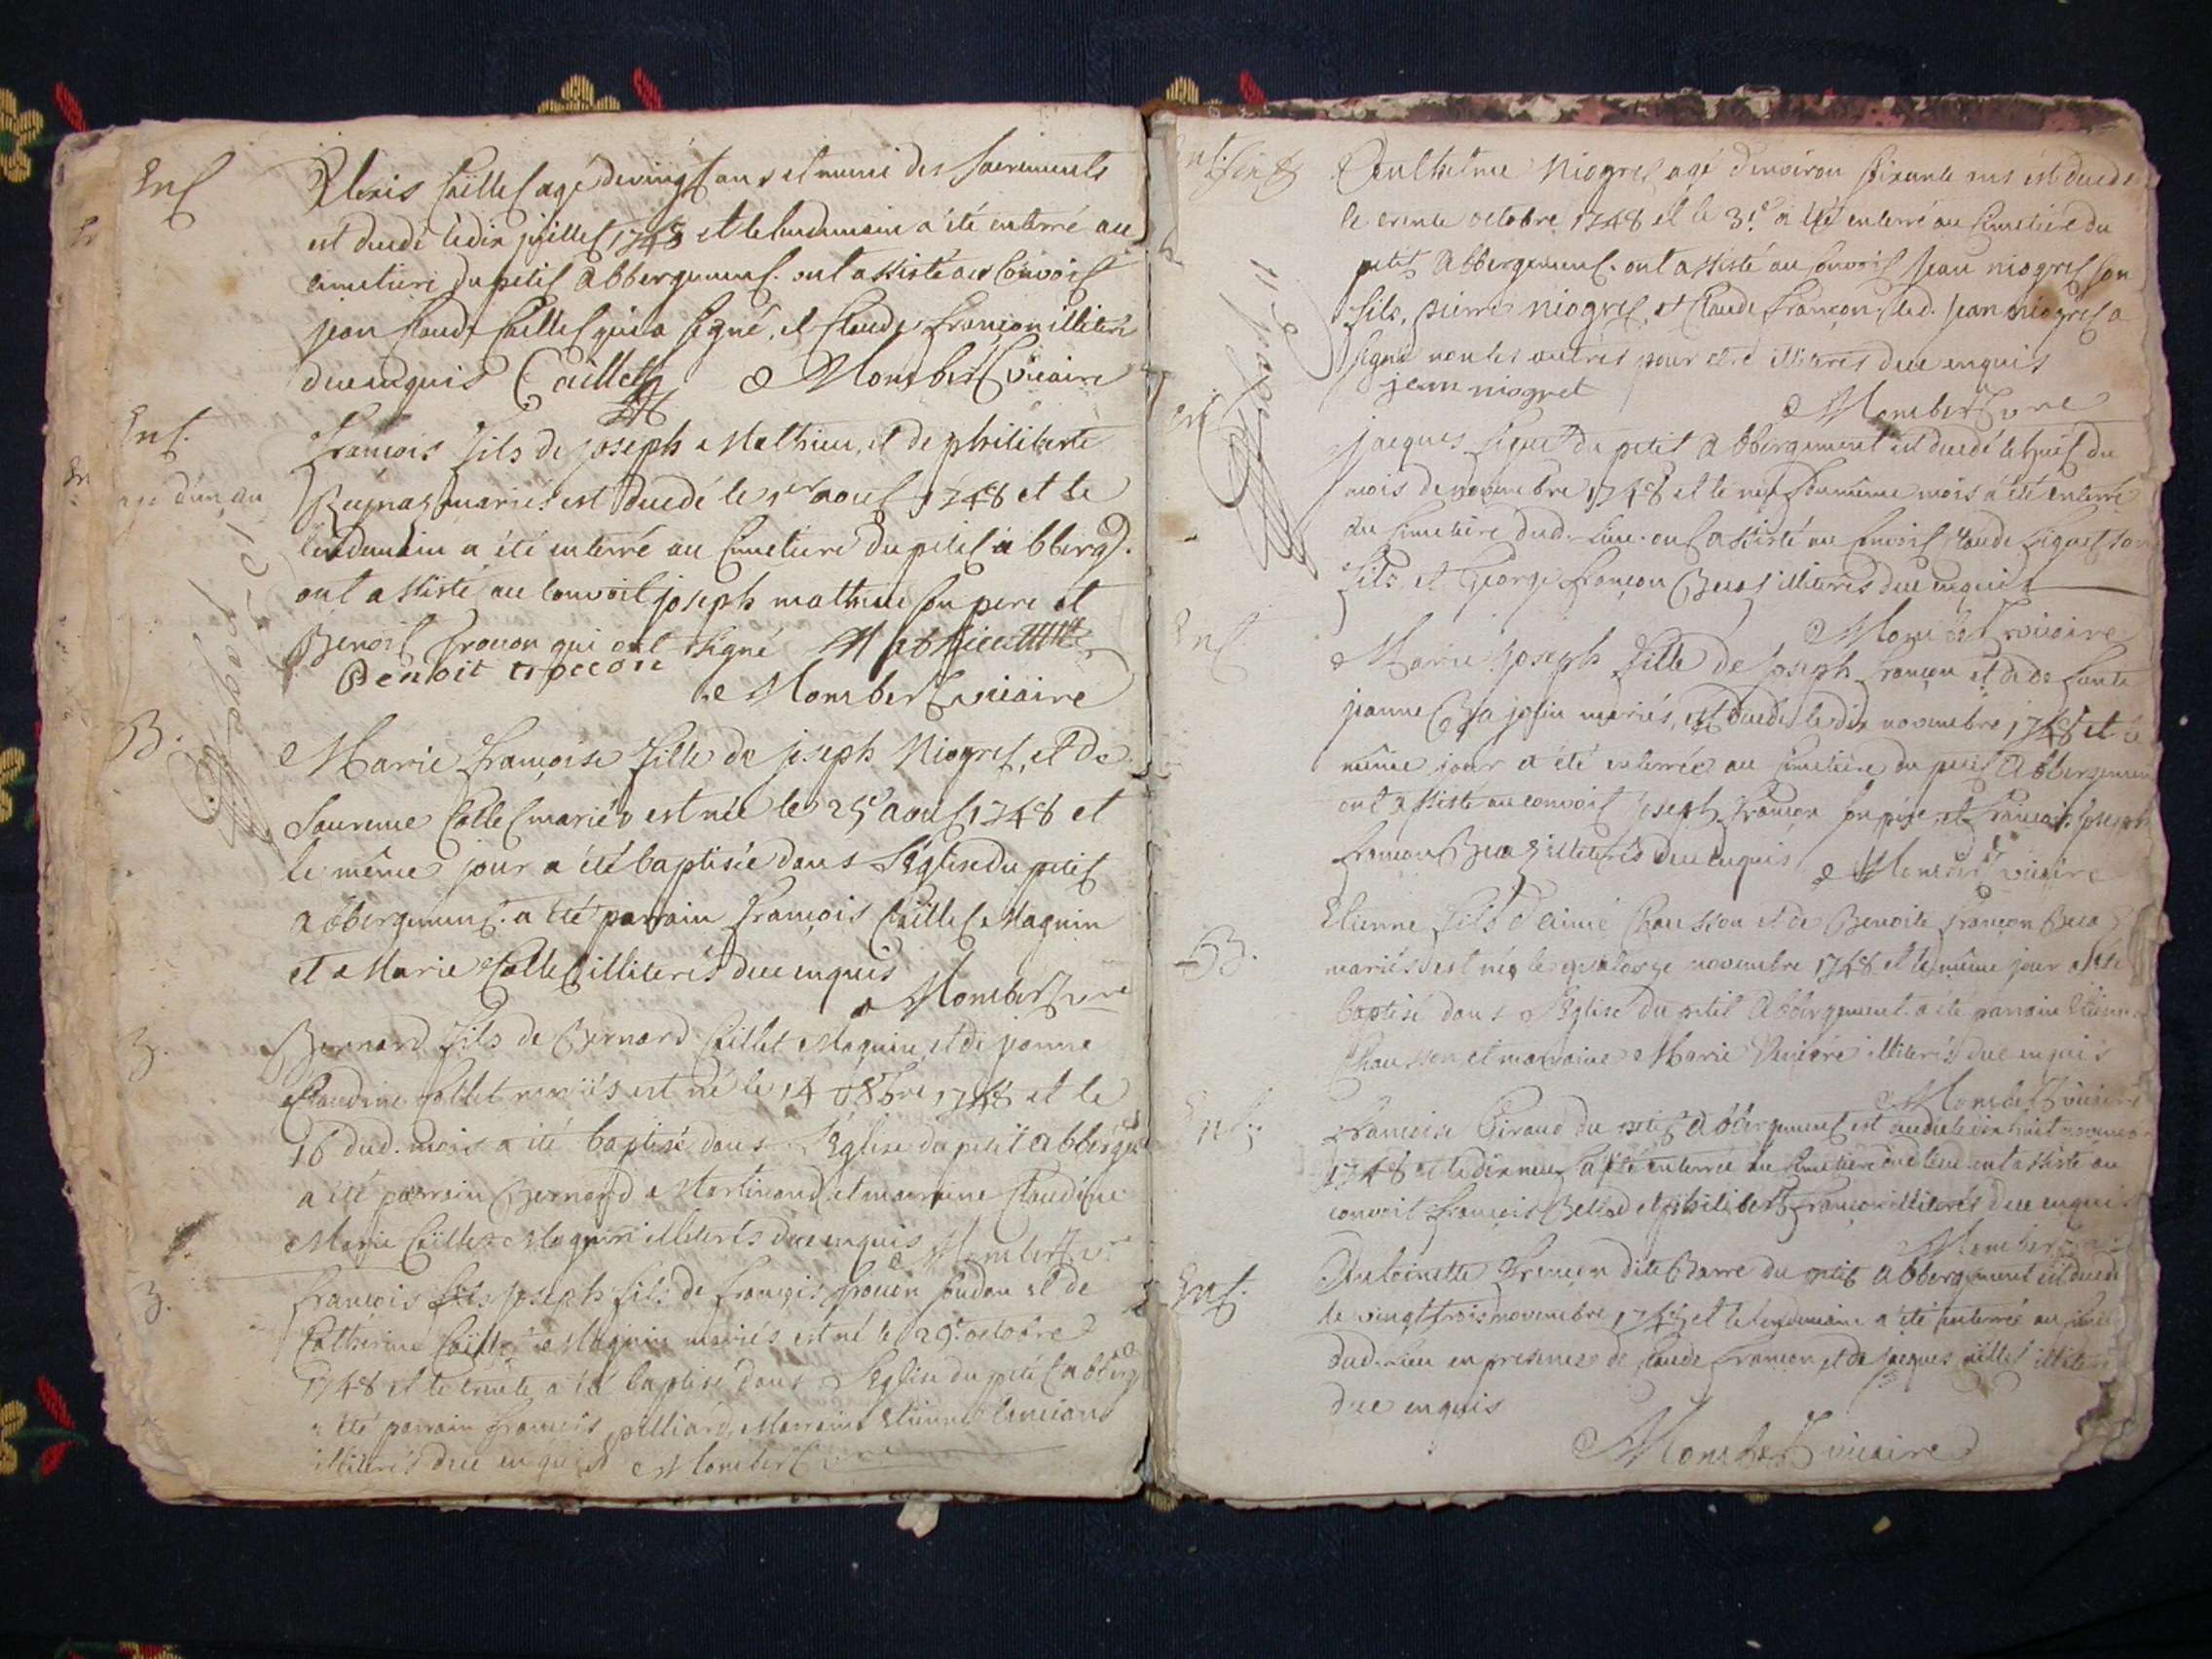 Ent
Alexis Caillet agé de vingt ans et muni des sacrements
est decedé le dix juillet 1748 et le lendemain a été enterré au
cimetiere du petit abbergement. ont assisté au convoit
jean Claude Caillet qui a signé, et Claude françon illiteré
duement enquis Caillet Mombert vicaire
Ent.
agé d'un an
françois fils de joseph Mathieu, et de philiberte
mariés est decedé le 1er aout 1748 et le
lendemain a été enterré au cimetiere du petit abberg.
ont assisté au convoit joseph mathieu son pere et
Benoit trocon qui ont signé Mathieu
Benoit trocon
Mombert vicaire
B.
Marie françoise fille de joseph Niogret, et de
Laurence Collet mariés est née le 25e aout 1748 et
le même jour a été baptisée dans l'Eglise du petit
abbergement. a été parrain françois Caillet Maquin
et Marie Collet illiterés due enquis
Mombert vre
B.
Bernard fils de Bernard Caillet Maquin, et de jeanne
Claudine Collet mariés est né le 14 8bre 1748 et le
16 dud. mois a été baptisé dans l'Eglise du petit abberg
a été parrain Bernard Martinand, et marraine Claudine
Marie Caillet Maquin illiterés due enquis Mombert vre
B.
françois joseph fils de françois trocon et de
Catherine Caillet Maquin mariés est né le 29e octobre
1748 et le trente a été baptisé dans l'Eglise du petit abberg
a été parrain françois palliard, Marraine Etiennette
illiterés due enquis Mombert vre
Ent.
Anthelme Niogret agé d'environ soixante ans est decedé
le trente octobre 1748 et le 31e a été enterré au cimetiere du
petit abbergement. ont assisté au convoit jean niogret son
fils, pierre niogret, et Claude françon, led. jean niogret a
signé non les autres pour etre illiteres due enquis
jean niogret
Mombert vre
Ent
jacques du petit abbergement est decedé le huit du
mois de novembre 1748 et le neuf du même mois a été enterré
au cimetiere dud. lieu. ont assisté au convoit Claude son
fils, et George françon illiterés due enquis
Mombert vicaire
Ent
Marie joseph fille de joseph françon et de
jeanne mariés, est decedée le dix novembre 1748 et le
même jour a été enterrée au cimetiere du petit abbergement
ont assisté au convoit joseph françon son pere, et françois joseph
françon illiterés due enquis Mombert vicaire
B.
Etienne fils d'aimé Chausson et de Benoite françon
mariés est né le quatorze novembre 1748 et le même jour a été
baptisé dans l'Eglise du petit abbergement. a été parrain Etienne
Chausson et marraine Marie illiterés due enquis
Mombert vicaire
Ent.
françoise Giraud du petit abbergement est decedée le dix huit novembre
1748 et le dix neuf a été enterrée au cimetiere dud lieu. ont assisté au
convoit françois et philibert françon illiterés due enquis
Mombert
Ent.
Antoinette françon dite Barre du petit abbergement est decedée
le vingt trois novembre 1748 et le lendemain a été enterrée au
dud. lieu en presence de Claude françon, et de jacques Caillet illiterés
due enquis
Mombert vicaire